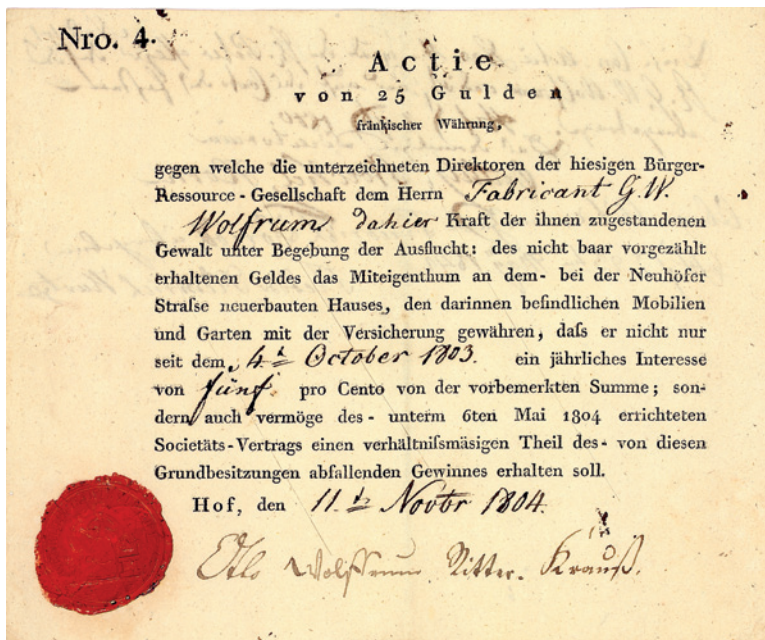 Nro. 4.
Actie
von 25 Gulden
fränkischer Währung,
gegen welche die unterzeichneten Direktoren der hiesigen Bürger-
Ressource-Gesellschaft dem Herrn Fabricant G. W.
Wolfrum dahier Kraft der ihnen zugestandenen
Gewalt unter Begebung der Ausflucht: des nicht baar vorgezählt
erhaltenen Geldes das Miteigenthum an dem- bei der Neuhöfer
Straſse neuerbauten Hauses, den darinnen befindlichen Mobilien
und Garten mit der Versicherung gewähren, daſs er nicht nur
seit dem 4. October 1803. ein jährliches Interesse
von fünf pro Cento von der vorbemerkten Summe; son-
dern auch vermöge des- unterm 6ten Mai 1804 errichteten
Societäts-Vertrags einen verhältniſsmäsigen Theil des- von diesen
Grundbesitzungen abfallenden Gewinnes erhalten soll.
Hof, den 11. Novbr 1804.
Wolffrum Ritter. Krauß.